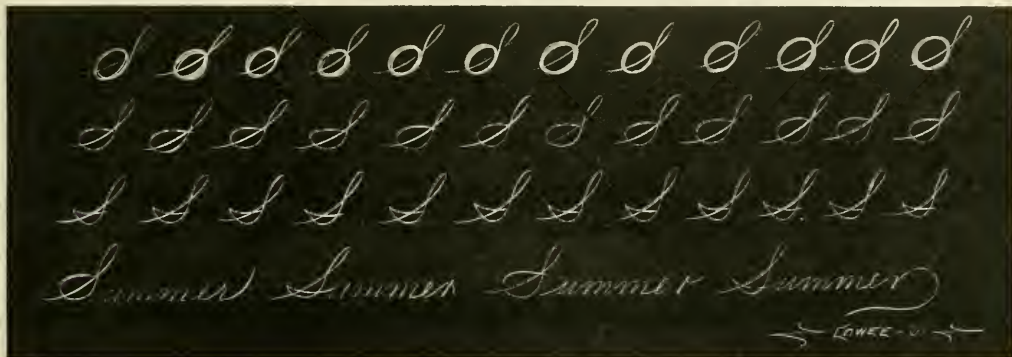 S S S S S S S S S S S S
S S S S S S S S S S S S
S S S S S S S S S S S S
Summer Summer Summer Summer